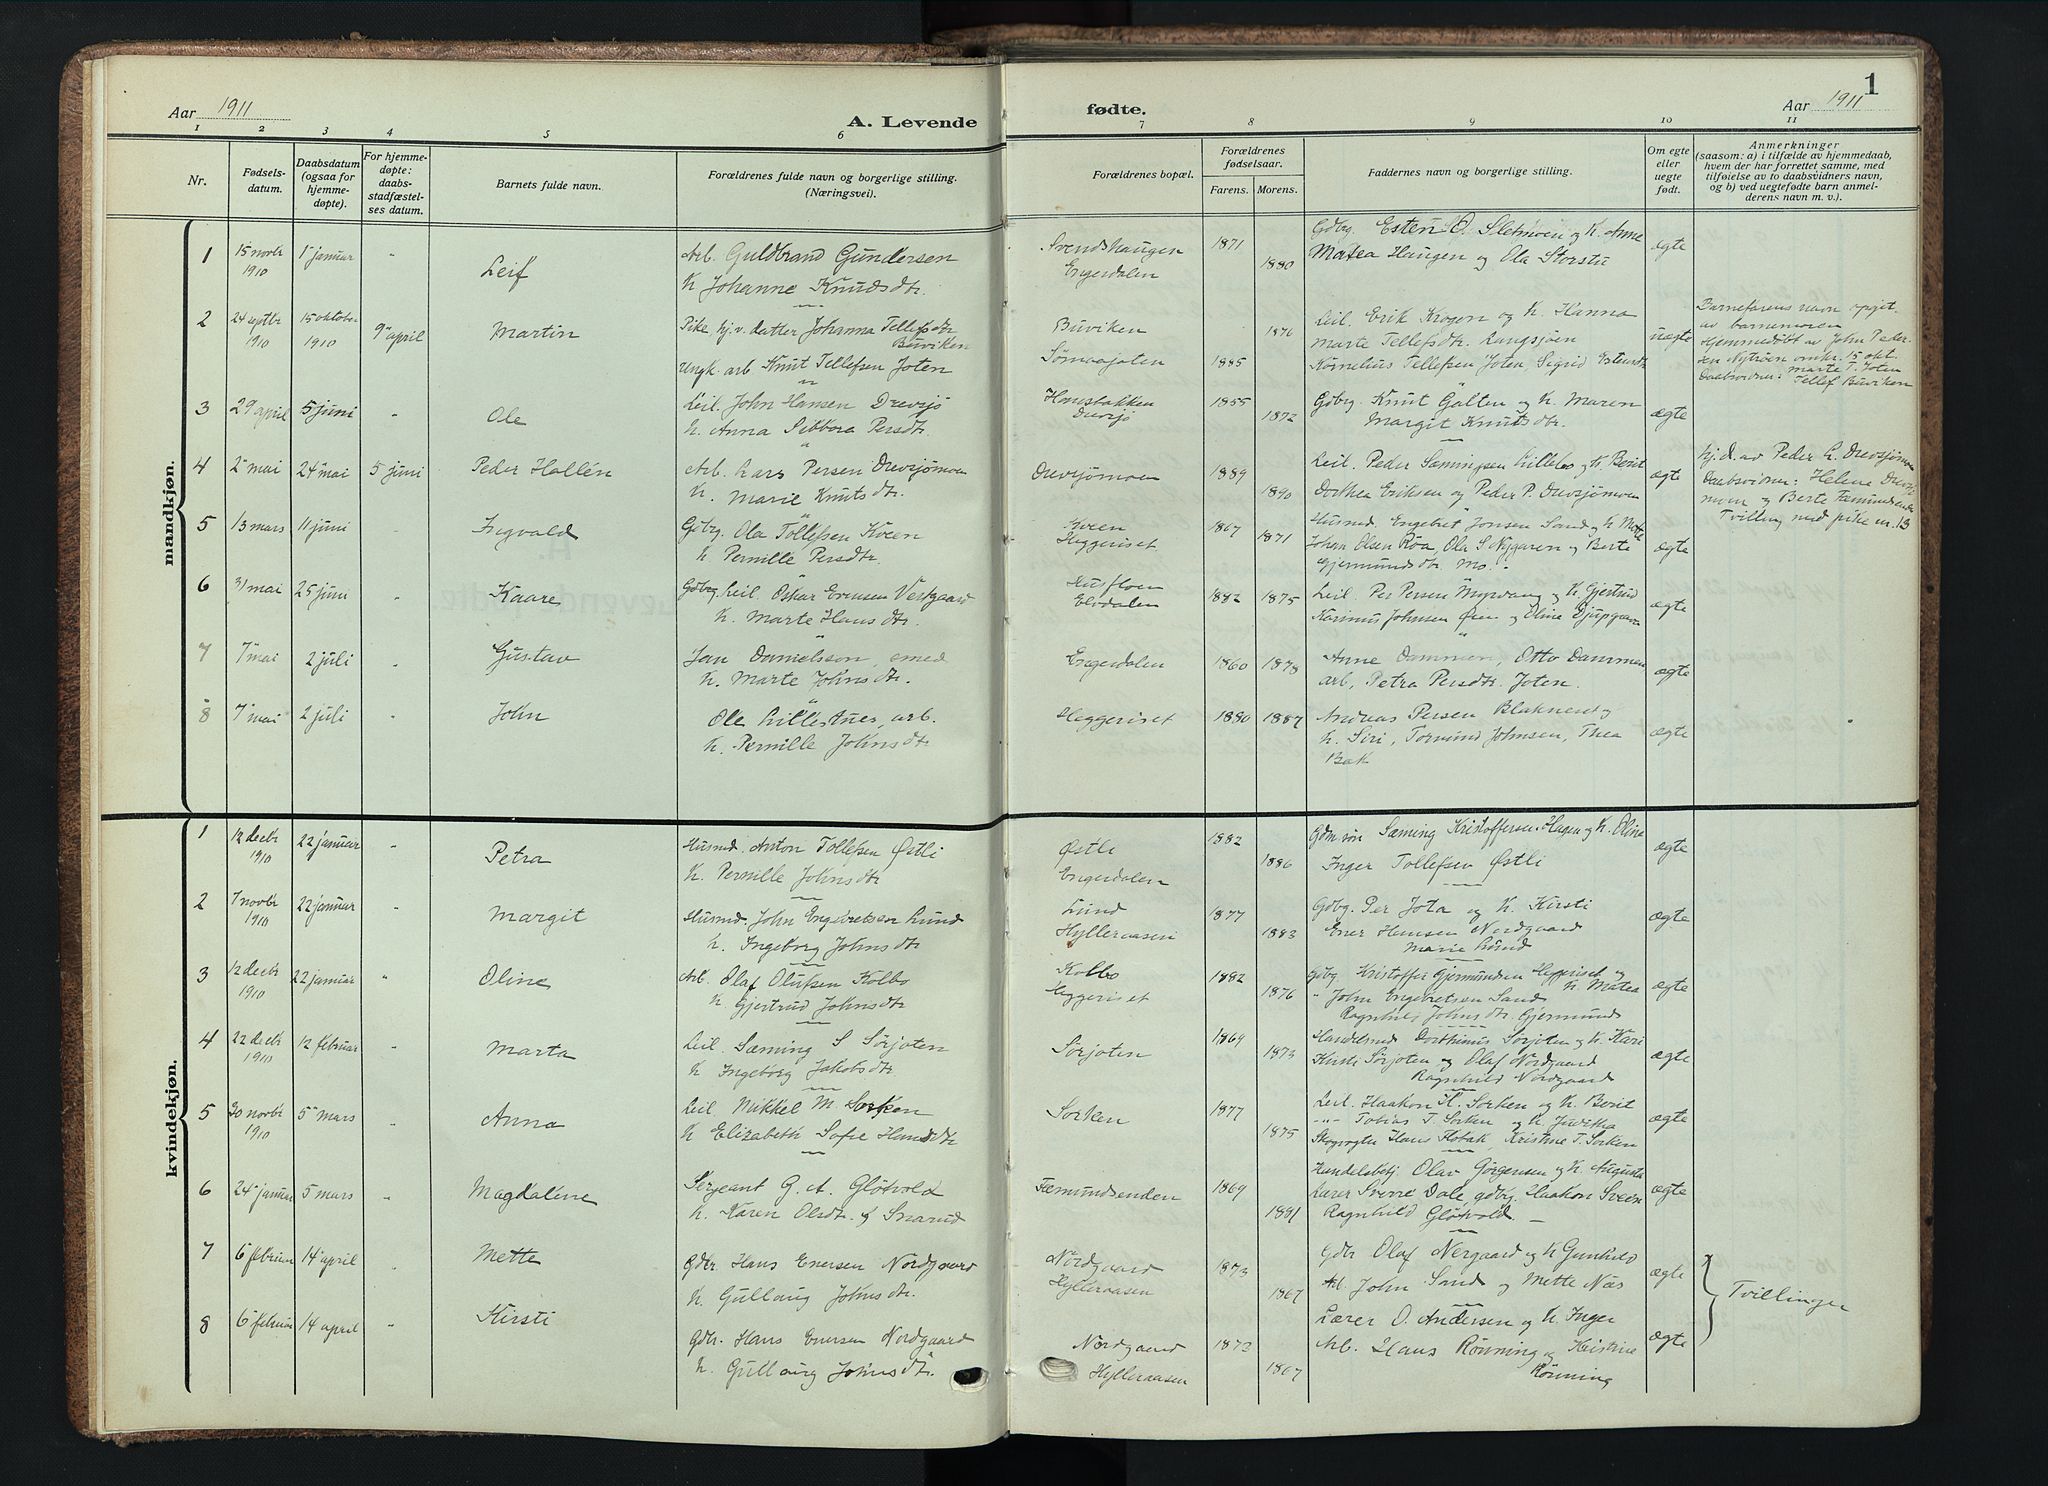 Aar 1911
A. Levende
fødte.
1
Aar 1911
1 2 3 4 5 6 7 8 9 10 11
Nr.
Fødsels-
datum.
Daabsdatum
(ogsaa for
hjemme-
døpte).
For hjemme-
døpte:
daabs-
stadfæstel-
ses datum.
Barnets fulde navn.
Forældrenes fulde navn og borgerlige stilling.
(Næringsvei).
Forældrenes bopæl.
Forældrenes
fødselsaar.
Farens. Morens.
Faddernes navn og borgerlige stilling.
Om egte
eller
uegte
født.
Anmerkninger
(saasom: a) i tilfælde av hjemmedaab,
hvem der har forrettet samme, med
tilføielse av to daabsvidners navn,
og b) ved uegtefødte barn anmel-
derens navn m. v.).
mandkjøn.
1 15 novbr 1910 1 januar " Leif
Arb. Guldbrand Gundersen
K. Johanne Knudsdtr.
Svendshaugen
Engerdalen
1871 1880
Gdbg. Esten O. Sletmoen og K. Anne
Matea Haugen og Ola Storstu
ægte
2 24 septbr 1910 15 oktober 1910 9 april Martin
Pike hj.v. datter Johanna Tellefsdtr
Buviken
Ungk. arb Knut Tellefsen Joten
Buviken
Sømaajoten
1876 1885
Leil. Erik Krogen og K. Hanna
Marte Tellefsdtr. Langsjøen
Kornelius Tellefsen Joten, Sigrid Estensdtr
uægte
Barnefarens navn opgit
av barnemoren
Hjemmedøbt av John Peder-
sen Nytrøen omkr. 15 okt.
Daabsvidner: Marte T. Joten
Tellef Buviken
3 29 april 5 juni " Ole
Leil. John Hansen Drevsjø
K. Anna Sibbora Persdtr.
Drevsjø
1855 1872
Gdbg. Knut Galten og K. Maren
Margit Knutsdtr.
ægte
4 2 mai 24 mai 5 juni Peder Hallén
Arb. Lars Persen Drevsjømoen
K. Marie Knutsdtr.
Drevsjømoen
1889 1890
Leil. Peder Sæmingsen Lillebo og K. Berit
Dorthea Eriksen og Peder P. Drevsjømoen
ægte
hj.d. av Peder L. Drevsjømoen
Daabsvidner: Helene Drevsjø
moen og Berte Fæmundsenden
Tvilling med pike nr. 13
5 13 mars 11 juni " Ingvald
Gdbg. Ola Tollefsen Kvæn
K. Pernille Persdtr.
Heggeriset
1867 1871
Husmd. Engebret Jonsen Sand og K. Mette
Johan Olsen Røa, Ola S. Nygaren og Berte
Gjermundsdtr. Mo.
ægte
6 31 mai 25 juni " Kaare
Gdbg Leil. Oskar Evensen Vestgaard
K. Marte Hansdtr.
Husfloen
Elvdalen
1882 1875
Leil. Per Persen Myrvang og K. Gjertrud
Karinus Johnsen Øien og Oline Djupgraven
ægte
7 7 mai 2 juli " Gustav
Jan Danielsson, smed
K. Marte Johnsdtr.
Engerdalen
1860 1878
Anne Dammen, Otto Dammen,
arb, Petra Persdtr. Joten.
ægte
8 7 mai 2 juli " John
Ole Lillestuer, arb.
K. Pernille Johnsdtr
Heggeriset
1880 1887
Andreas Persen Blakneret og
K. Siri, Tormund Johnsen, Thea
Bak
ægte
kvindekjøn.
1 12 decbr 1910 22 januar " Petra
Husmd. Anton Tollefsen Østli
K. Pernille Johnsdtr
Østli
Engerdalen
1882 1886
Gdm. søn Sæming Kristoffersen Hagen og K. Oline
Inger Tollefsen Østli
ægte
2 7 novbr 1910 22 januar " Margit
Husmd. John Engebretsen Lund
K. Ingeborg Johnsdtr
Lund
Hylleraasen
1877 1883
Gdbg. Per Jota og K. Kirsti
Ener Hansen Nordgaard
Marie Lund
ægte
3 12 decbr 1910 22 januar " Oline
Arb. Olaf Olufsen Kolbo
K. Gjertrud Johnsdtr
Kolbo
Heggeriset
1882 1876
Gdbg Kristoffer Gjermundsen Heggeriset og
K. Matea
" John Engebretsen Sand
Ragnhild Johnsdtr. Gjermunds
ægte
4 22 decbr 1910 12 februar " Marta
Leil. Sæming S Sørjoten
K Ingeborg Jakobsdtr
Sørjoten
1869 1873
Handelsmd Dorthinus Sørjoten og K. Kari
Kirsti Sørjoten og Olaf Nordgaard
Ragnhild Nordgaard
ægte
5 30 novbr 1910 5 mars " Anna
Leil. Mikkel M. Sorken
K Elizabeth Sofie Hansdtr
Sorken
1877 1875
Leil. Haakon H. Sorken og K. Berit
-"- Tobias T. Sorken og K. Juditha
Skogvogter Hans Flobak Kristine T. Sorken
ægte
6 24 januar 5 mars " Magdalene
Sergeant G. A. Gløtvold
K. Karen Olsdtr. f Snarud
Fæmundsenden
1869 1881
Handelsbetj. Olav Jørgensen og K. Augusta
Lærer Sverre Dale, gdbg. Haakon Sveen
Ragnhild Gløtvold.
ægte
7 6 februar 14 april " Mette
Gdbr Hans Enersen Nordgaard
K. Gullaug Johnsdtr.
Nordgaard
Hylleraasen
1873 1867
Gdbr Olaf Nergaard og K Gunhild
Arb. John Sand og Mette Näs
ægte
Tvillinger
8 6 februar 14 april " Kirsti
Gdbr. Hans Enersen Nordgaard
K. Gullaug Johnsdtr.
Nordgaard
Hylleraasen
1873 1867
Lærer O. Andersen og K. Inger
Arb. Hans Rønning og Kristine
Rønning
ægte